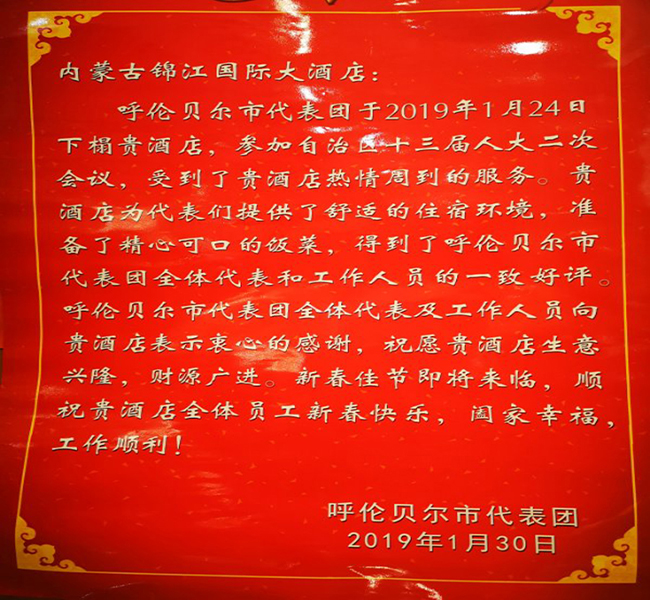 内蒙古锦江国际大酒店：
呼伦贝尔市代表团于2019年1月24日
下榻贵酒店，参加自治区十三届人大二次
会议，受到了贵酒店热情周到的服务。贵
酒店为代表们提供了舒适的住宿环境，准
备了精心可口的饭菜，得到了呼伦贝尔市
代表团全体代表和工作人员的一致好评。
呼伦贝尔市代表团全体代表及工作人员向
贵酒店表示衷心的感谢，祝愿贵酒店生意
兴隆，财源广进。新春佳节即将来临，顺
祝贵酒店全体员工新春快乐，阖家幸福，
工作顺利！
呼伦贝尔市代表团
2019年1月30日